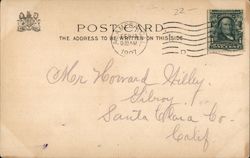 22-
POST CARD
THE ADDRESS TO BE WRITTEN ON THIS SIDE.
9 30 AM
1907
Mr Howard Willey.
Gilroy
Santa Clara Co-
Calif.